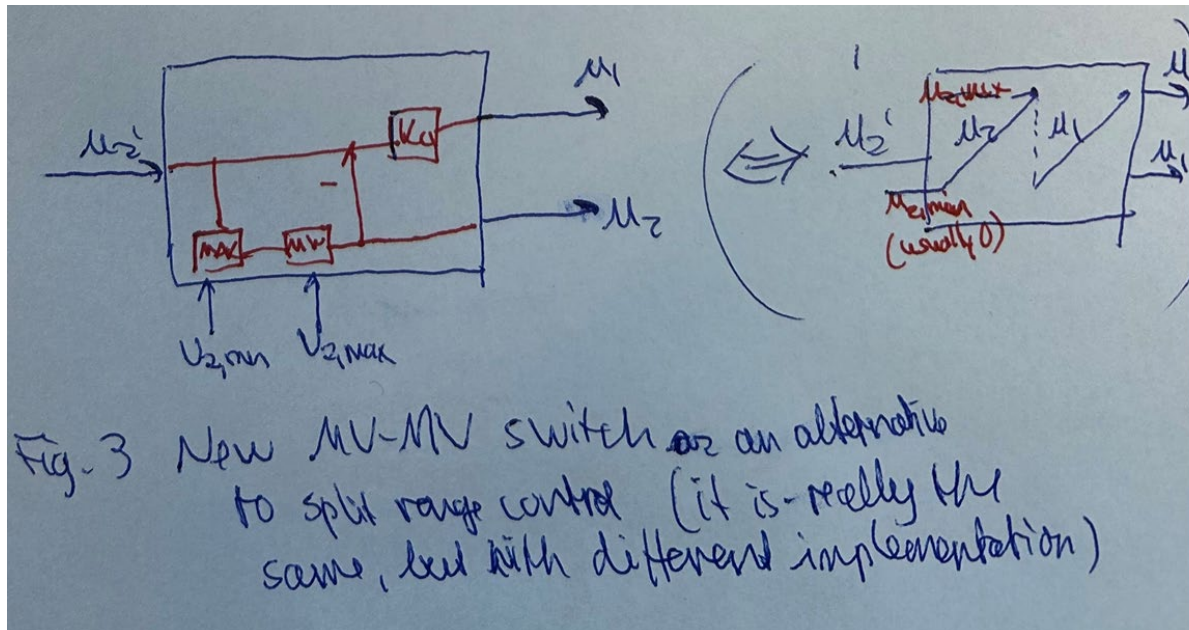 u2'
MAX
MIN
u1
u2
U2,min
U2,max
u2'
u2,max
u2
u1
u2,min
(usually 0)
u1
Fig. 3 New MV-MV switch as an alternative
to split range control (it is really the
same, but with different implementation)